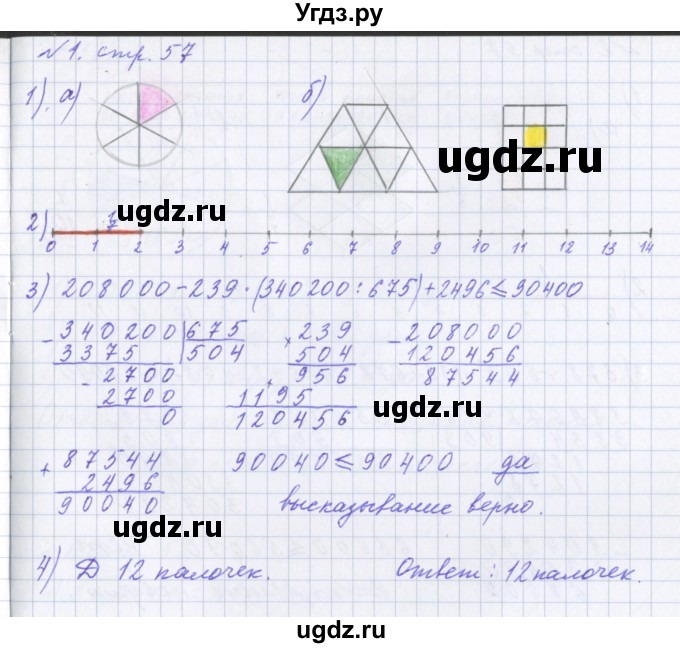 Угдз.ру
№1. стр. 57
1). а) б)
ugdz.ru
ugdz.ru
2) 1/7
0 1 2 3 4 5 6 7 8 9 10 11 12 13 14
3) 208000-239·(340200:675)+2496≤90400
-340200|675 ×239 -208000
3375 |504 504 120456
-2700 +956 87544
2700 1195 ugdz.ru
0 120456
+87544 90040≤90400 да
2496
90040 высказывание верно.
ugdz.ru
4) Д 12 палочек. Ответ: 12 палочек.
ugdz.ru